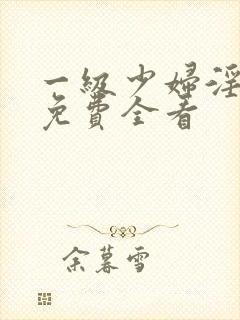 一級少婦淫
免費全看
余暮雪